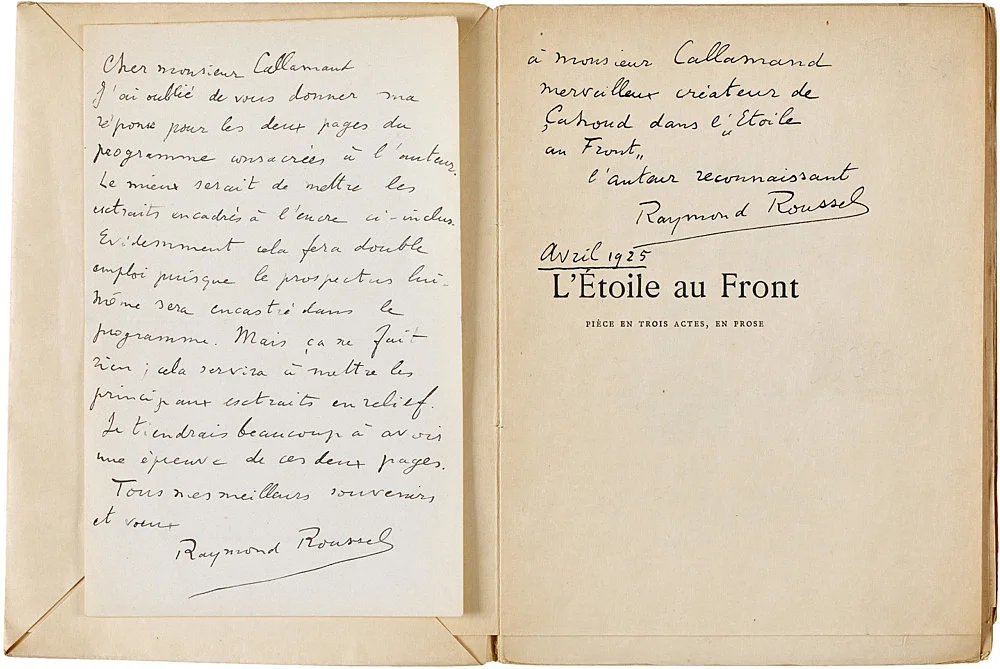 Cher monsieur Callamant
J'ai oublié de vous donner ma
réponse pour les deux pages du
programme consacrées à l'auteur.
Le mieux serait de mettre les
extraits encadrés à l'encre ci-inclus.
Evidemment cela fera double
emploi puisque le prospectus lui-
même sera encastré dans le
programme. Mais ça ne fait
rien ; cela servira à mettre les
principaux extraits en relief.
Je tiendrais beaucoup à avoir
une épreuve de ces deux pages.
Tous mes meilleurs souvenirs
et voeux
Raymond Roussel
à monsieur Callamand
merveilleux créateur de
Çahoud dans l'"Etoile
au Front"
l'auteur reconnaissant
Raymond Roussel
Avril 1925
L'Étoile au Front
PIÈCE EN TROIS ACTES, EN PROSE